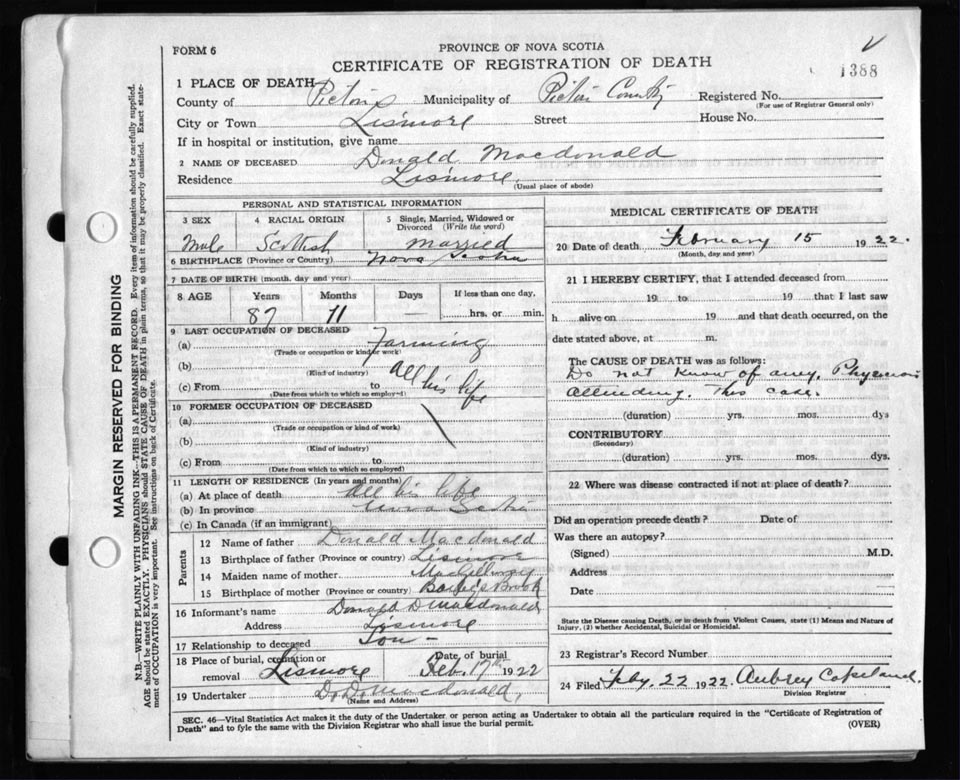 FORM 6
PROVINCE OF NOVA SCOTIA
CERTIFICATE OF REGISTRATION OF DEATH
1388
1 PLACE OF DEATH
County of Pictou Municipality of Pictou County Registered No.
(For use of Registrar General only)
City or Town Lismore Street House No.
If in hospital or institution, give name
2 NAME OF DECEASED Donald Macdonald
Residence Lismore
(Usual place of abode)
PERSONAL AND STATISTICAL INFORMATION
3 SEX 4 RACIAL ORIGIN 5 Single, Married, Widowed or Divorced (Write the word)
Male Scottish married
6 BIRTHPLACE (Province or Country) Nova Scotia
7 DATE OF BIRTH (month, day and year)
8 AGE Years Months Days If less than one day,
87 11 — hrs. or min.
9 LAST OCCUPATION OF DECEASED
(a) Farming
(Trade or occupation or kind of work)
(b)
(Kind of industry)
(c) From to all his life
(Date from which to which so employed)
10 FORMER OCCUPATION OF DECEASED
(a)
(Trade or occupation or kind of work)
(b)
(Kind of industry)
(c) From to
(Date from which to which so employed)
11 LENGTH OF RESIDENCE (In years and months)
(a) At place of death all his life
(b) In province Nova Scotia
(c) In Canada (if an immigrant)
Parents
12 Name of father Donald Macdonald
13 Birthplace of father (Province or country) Lismore
14 Maiden name of mother MacGillivray
15 Birthplace of mother (Province or country) Brook
16 Informant's name Donald D Macdonald
Address Lismore
17 Relationship to deceased Son -
18 Place of burial, cremation or removal Lismore Date of burial Feb. 17th 1922
19 Undertaker Macdonald,
(Name and Address)
MEDICAL CERTIFICATE OF DEATH
20 Date of death February 15 1922.
(Month, day and year)
21 I HEREBY CERTIFY, that I attended deceased from
19 to 19 that I last saw
h alive on 19 and that death occurred, on the
date stated above, at m.
The CAUSE OF DEATH was as follows:
Do not know of any. Physician
attending. This case.
(duration) yrs. mos. dys
CONTRIBUTORY
(Secondary)
(duration) yrs. mos. dys.
22 Where was disease contracted if not at place of death?
Did an operation precede death? Date of
Was there an autopsy?
(Signed) M.D.
Address
Date
State the Disease causing Death, or in death from Violent Causes, state (1) Means and Nature of
Injury, (2) whether Accidental, Suicidal or Homicidal.
23 Registrar's Record Number
24 Filed Feby. 22 1922. Aubrey Copeland.
Division Registrar
SEC. 46—Vital Statistics Act makes it the duty of the Undertaker or person acting as Undertaker to obtain all the particulars required in the "Certificate of Registration of
Death" and to fyle the same with the Division Registrar who shall issue the burial permit.
(OVER)
MARGIN RESERVED FOR BINDING
N.B.—WRITE PLAINLY WITH UNFADING INK—THIS IS A PERMANENT RECORD. Every item of information should be carefully supplied.
AGE should be stated EXACTLY. PHYSICIANS should STATE CAUSE OF DEATH in plain terms, so that it may be properly classified. Exact state-
ment of OCCUPATION is very important. See instructions on back of Certificate.